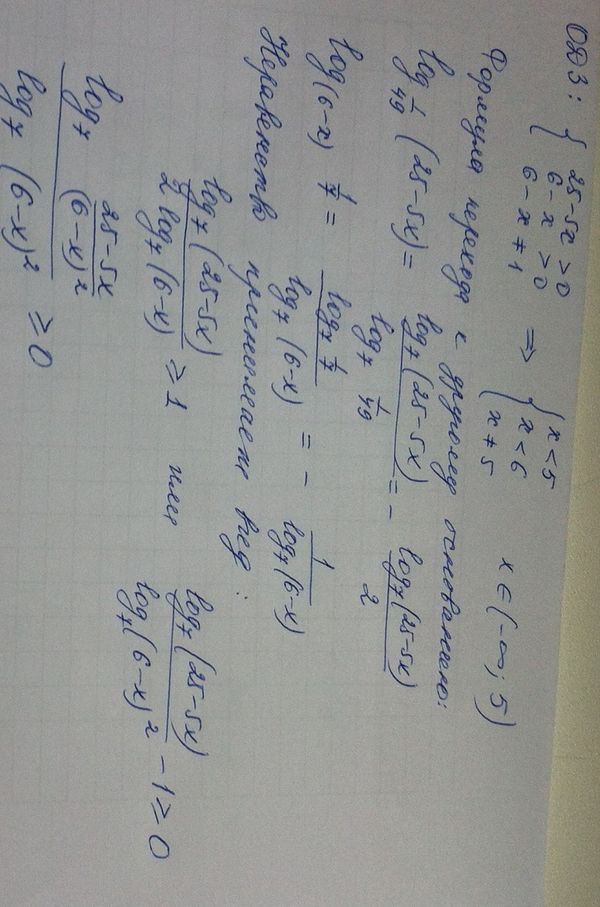 ОДЗ: { 25-5x > 0 ; 6-x > 0 ; 6-x ≠ 1 ⇒ { x < 5 ; x < 6 ; x ≠ 5 x ∈ (-∞; 5)
Формула перехода к другому основанию:
log_{1/49} (25-5x) = log_7 (25-5x) / log_7 1/49 = - log_7 (25-5x) / 2
log_(6-x) 1/7 = log_7 1/7 / log_7 (6-x) = - 1 / log_7 (6-x)
Неравенство принимает вид:
log_7 (25-5x) / 2 log_7 (6-x) ≥ 1 или log_7 (25-5x) / log_7 (6-x)^2 - 1 ≥ 0
log_7 (25-5x)/(6-x)^2 / log_7 (6-x)^2 ≥ 0